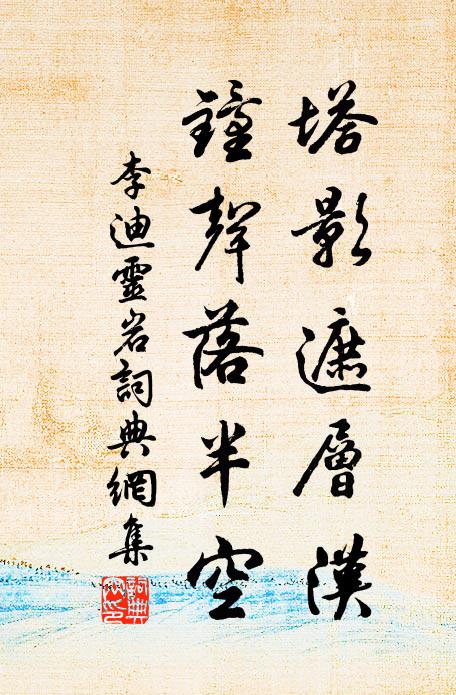 塔影遮層漢
鐘聲落半空
李迪靈岩詞典網集